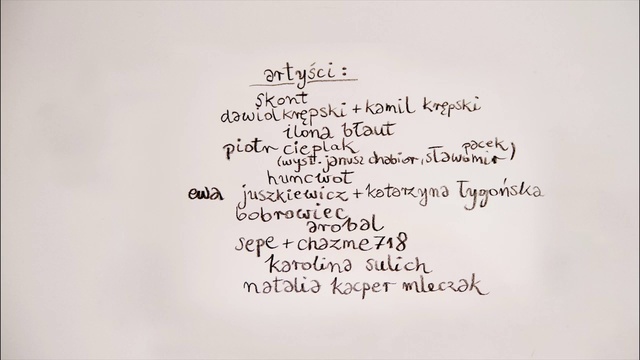 artyści:
skont
dawid krępski + kamil krępski
ilona błaut
piotr cieplak
(wyst. janusz chabior, sławomir pacek)
huncwot
ewa juszkiewicz + katarzyna łygońska
bobrowiec
arobal
sepe + chazme718
karolina sulich
natalia kacper mleczak